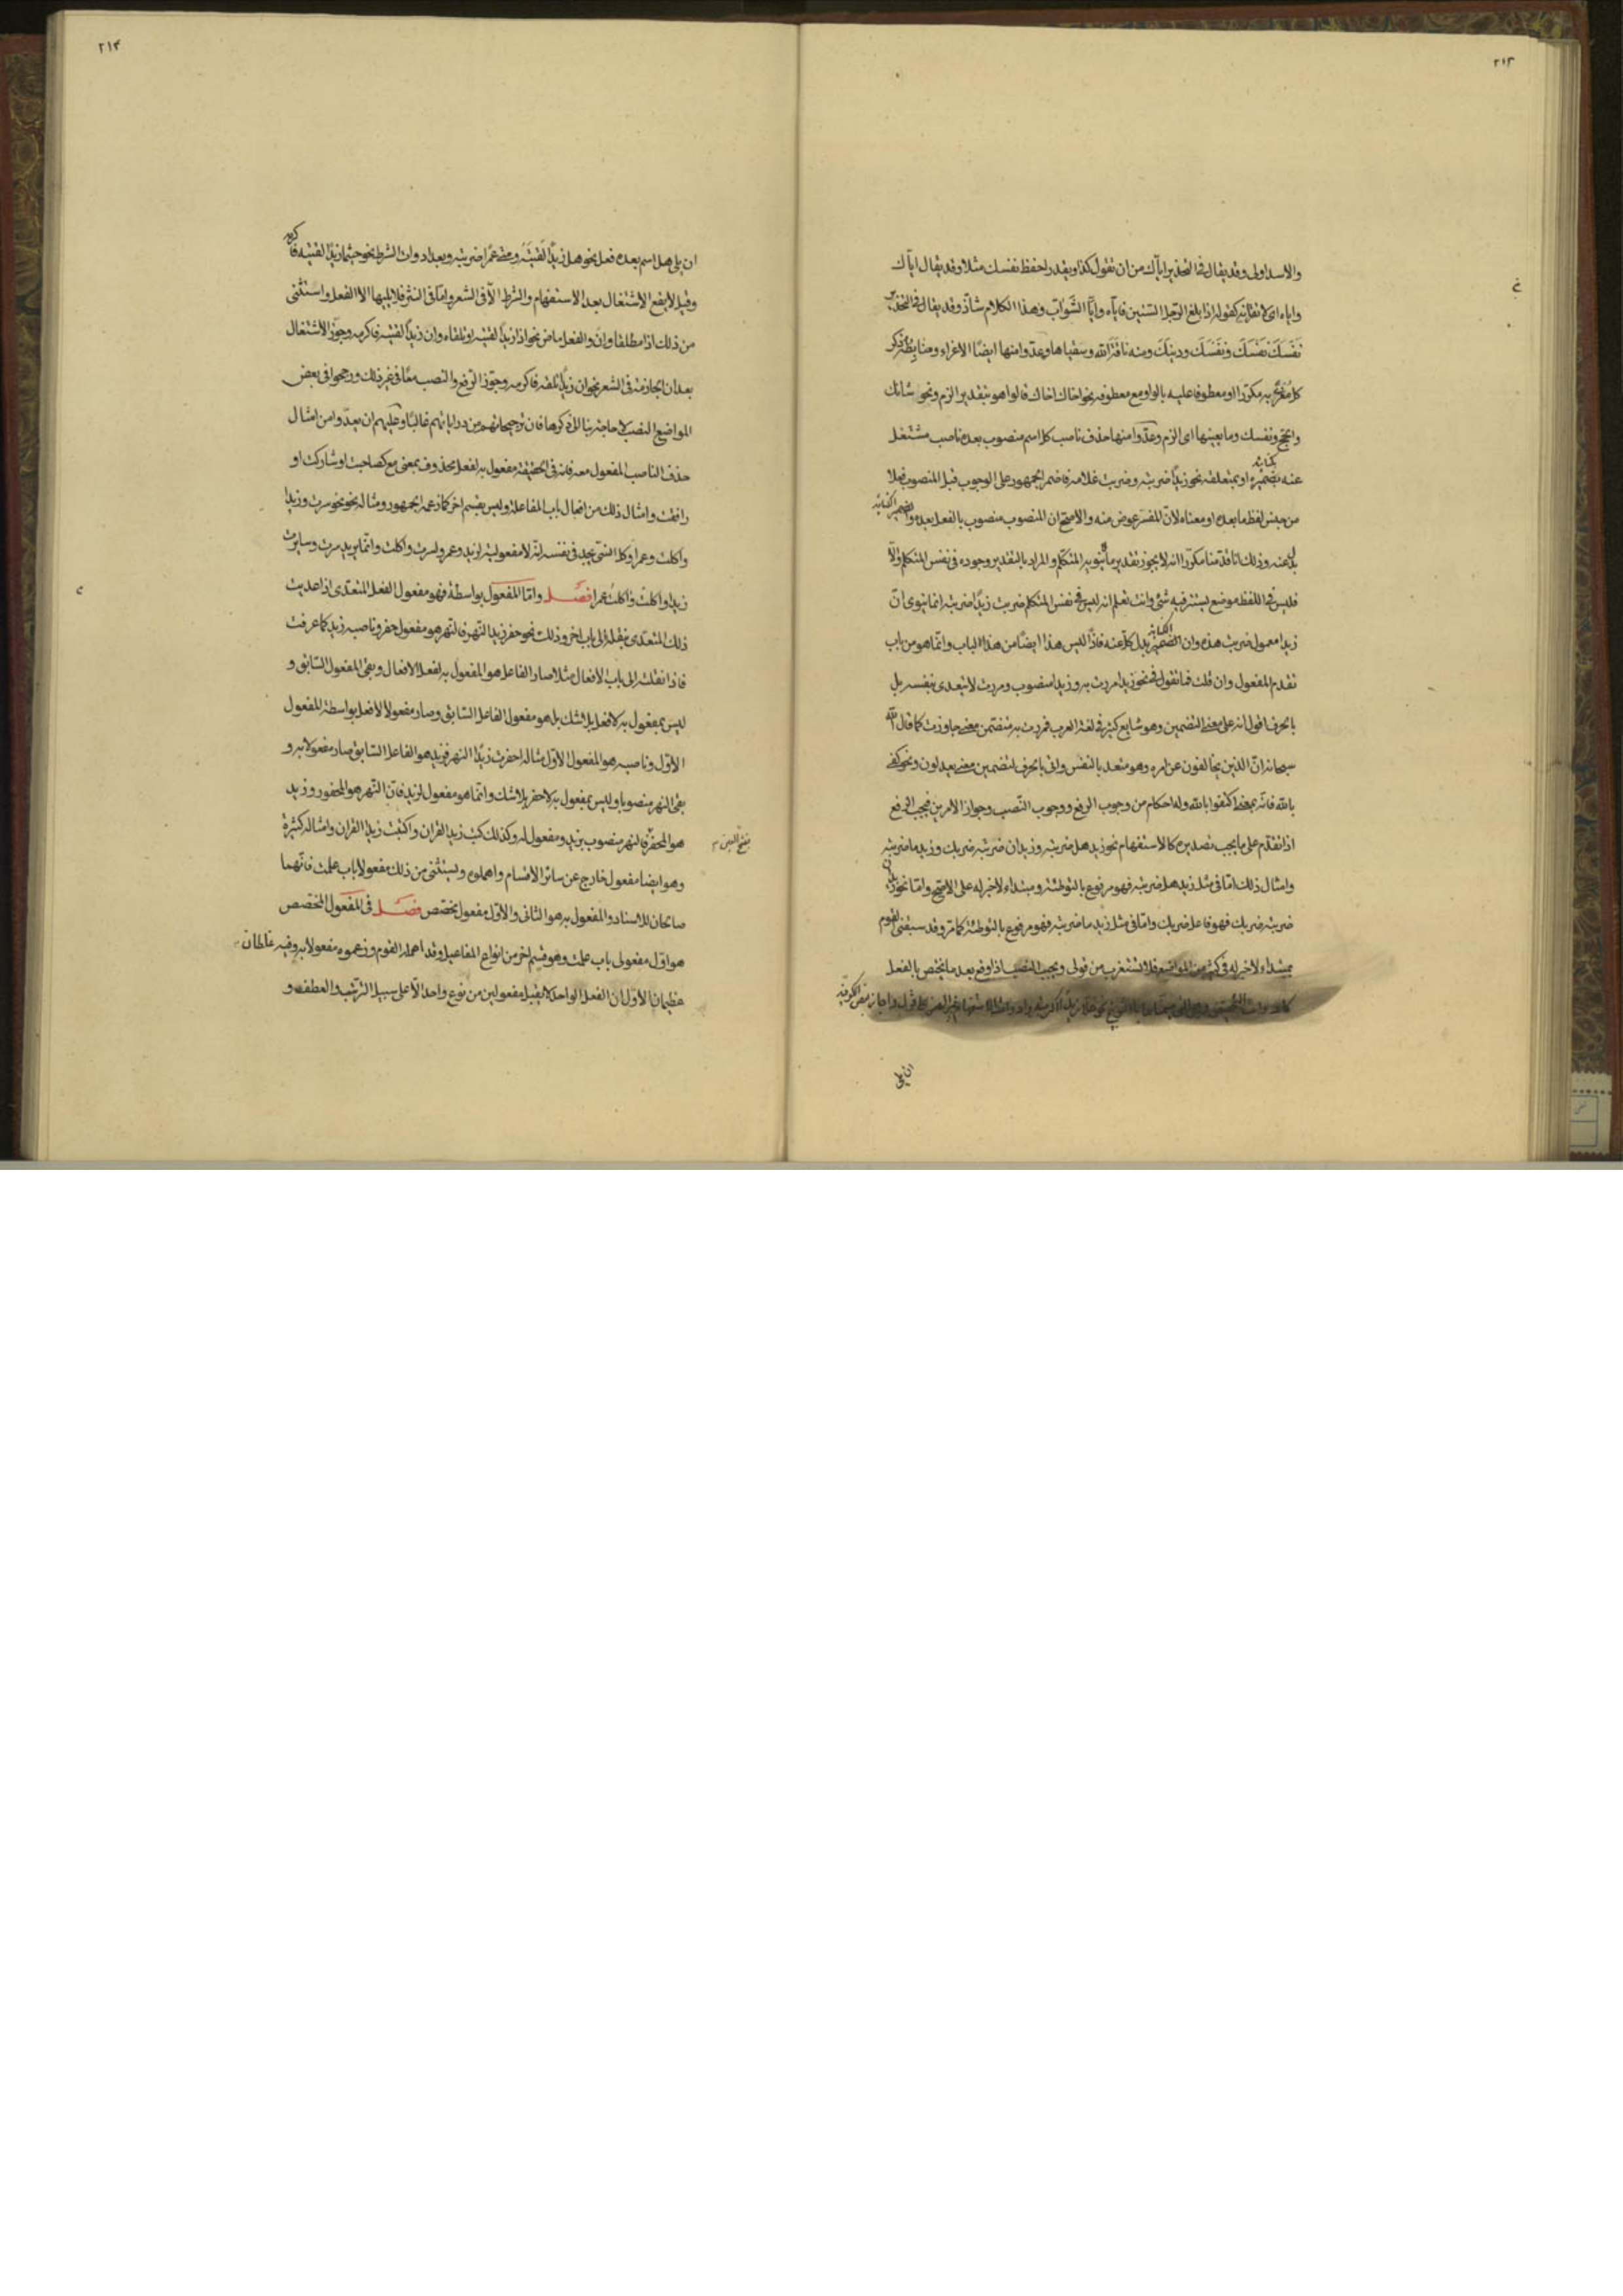 ٢١٣
والاسد اولى وقد يقال فى التحذير اياك من ان تقول كذا ويقدر احفظ نفسك مثلا وقد يقال اياك
واياه اى لا تقاربه كقوله اذا بلغ الرجل الستين فاياه وايا الشواب وهذا الكلام شاذ وقد يقال فى التحذير
نَفْسَكَ نَفْسَكَ ونَفْسَكَ ودينَكَ ومنه ناقة الله وسقياها وعدوا منها ايضا الاغراء ومنابطه ذكر
كل مغرى به مكررا او معطوفا عليه بالواو مع معطوفه نحو اخاك اخاك قالوا هو بتقدير الزم ونحو شانك
والحج ونفسك وما يعينها اى الزم وعدوا منها حذف ناصب كل اسم منصوب بعده ناصب مشتغل
عنه بضميره او بمتعلقه نحو زيدا ضربته وضربت غلامه فاضمر الجمهور على الوجوب قبل المنصوب فعلا
من جنس لفظ ما بعده او معناه لان المفسر عوض منه والاصح ان المنصوب منصوب بالفعل بعده والضمير الكناية
بدل عنه وذلك انا قد منا مكررا انه لا يجوز تقدير ما ينويه المتكلم والمراد بالتقدير وجوده فى نفس المتكلم والا
فليس فى اللفظ موضع يستتر فيه شئ وانت تعلم انه ليس فى نفس المتكلم ضربت زيدا ضربته انما ينوى ان
زيدا معمول ضربت هذه وان الضمير بدل كل عنه فاذا ليس هذا ايضا من هذا الباب وانما هو من باب
تقدم المفعول وان قلت فما تقول فى نحو زيدا مررت به وزيدا منصوب ومررت لا يتعدى بنفسه بل
بالحرف اقول انه على معنى التضمين وهو شايع كثير فى لغة العرب فمررت به متضمن معنى جاوزت كما قال الله
سبحانه ان الذين يخالفون عن امره وهو متعد بالنفس واتى بالحرف لتضمين معنى يعدلون ونحو كفى
بالله فانه بمعنى اكتفوا بالله وله احكام من وجوب الرفع ووجوب النصب وجواز الامرين فيجب الرفع
اذا تقدم على ما يجب تصديره كالاستفهام نحو زيد هل ضربته وزيد ان ضربته ضربك وزيد ما ضربته
وامثال ذلك اما فى مثل زيد هل ضربته فهو مرفوع بالتوطئة ومبتداء لا خبر له على الاصح واما نحو زيد ان
ضربته ضربك فهو فاعل ضربك واما فى مثل زيد ما ضربته فهو مرفوع بالتوطئة كما مر وقد سبقنى القوم
بمبتداء لا خبر له فى كثير من المواضع فلا تستغرب من قولى ويجب النصب اذا وقع بعد ما يختص بالفعل
ان يلى
٢١٤
ان يلى هل اسم بعده فعل نحو هل زيداً لَقيتَهُ ومتى عمرًا ضربته وبعد ادوات الشرط نحو حيثما زيداً لقيته فاكرمه
وقيل لا يقع الاشتغال بعد الاستفهام والشرط الا فى الشعر واما فى النثر فلا يليها الا الفعل واستثنى
من ذلك اذا مطلقا وان والفعل ماض نحو اذا زيداً لقيته او تلقاه وان زيداً لقيته فاكرمه وجوز الاشتغال
بعد ان الجازمة فى الشعر نحو ان زيداً تلقه فاكرمه وجوز الرفع والنصب معًا فى غير ذلك ورجحوا فى بعض
المواضع النصب لا حاجة بنا الى ذكرها فان ترجيحاتهم من دراياتهم غالبًا وعليهم ان يعدوا من امثال
حذف الناصب المفعول معه فانه فى الحقيقة مفعول به لفعل محذوف بمعنى مع كصاحبت او شاركت او
رافقت وامثال ذلك من افعال باب المفاعلة وليس بقسم اخر كما زعمه الجمهور ومثاله نحو نحو سرت وزيدا
واكلت وعمرا وكل انسان يجد فى نفسه انه لا مفعولية لزيد وعمرو لسرت واكلت وانما يريد سرت وسايرت
زيدا واكلت واكلت عمرا فصل واما المفعول بواسطة فهو مفعول الفعل المتعدى اذا عديت
ذلك المتعدى بنقله الى باب اخر وذلك نحو حفر زيد النهر فالنهر هو مفعول حفر وناصبه زيد كما عرفت
فاذا نقلته الى باب الافعال مثلا صار الفاعل هو المفعول به لفعل الافعال وبقى المفعول السابق و
ليس بمفعول به لافعل بلا شك بل هو مفعول الفاعل السابق وصار مفعولا لافعل بواسطة المفعول
الاول وناصبه هو المفعول الاول مثاله احفرت زيدًا النهر فزيد هو الفاعل السابق صار مفعولا به و
بقى النهر منصوبا وليس بمفعول به لاحفر بلا شك وانما هو مفعول لزيد فان النهر هو المحفور وزيد
هو المحفر فالنهر منصوب بزيد ومفعول له وكذلك كتب زيد القران واكتبت زيدا القران وامثاله كثيرة
وهو ايضا مفعول خارج عن سائر الاقسام واهملوه ويستثنى من ذلك مفعولا باب علمت فانهما
صالحان للاسناد والمفعول به هو الثانى والاول مفعول تخصص فصل فى المفعول المخصص
هو اول مفعولى باب علمت وهو قسم اخر من انواع المفاعيل وقد اهمله القوم وزعموه مفعولا به وفيه غلطان
عظيمان الاول ان الفعل الواحد لا يقبل مفعولين من نوع واحد الا على سبيل الترتيب والعطف و